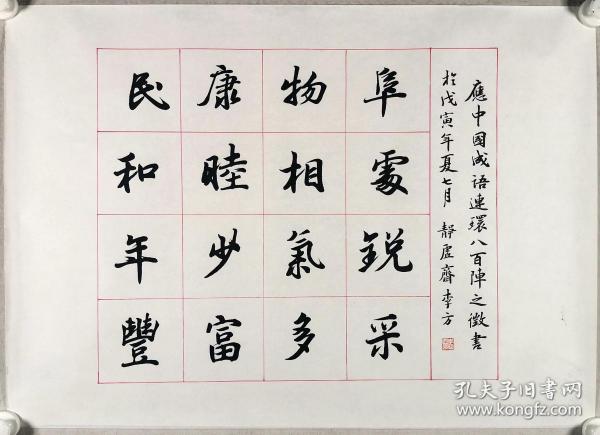 民康物阜
和睦相處
年少氣銳
豐富多采
應中國成语連環八百陣之徵書
於戊寅年夏七月 靜虛齋李方
孔夫子旧书网
www.kongfz.com